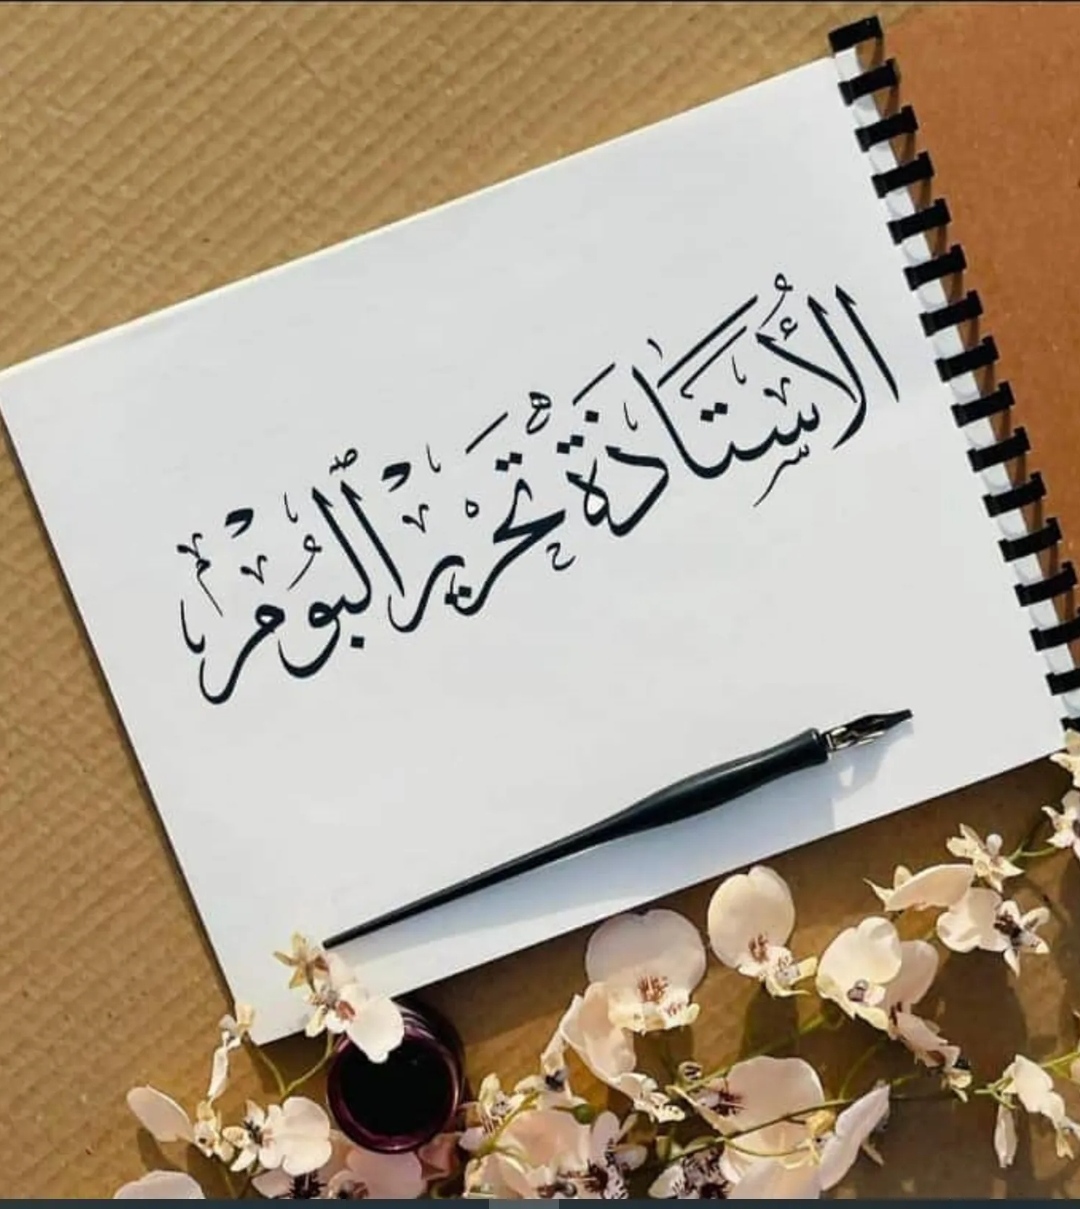 الأُستاذة تحرير البُوم